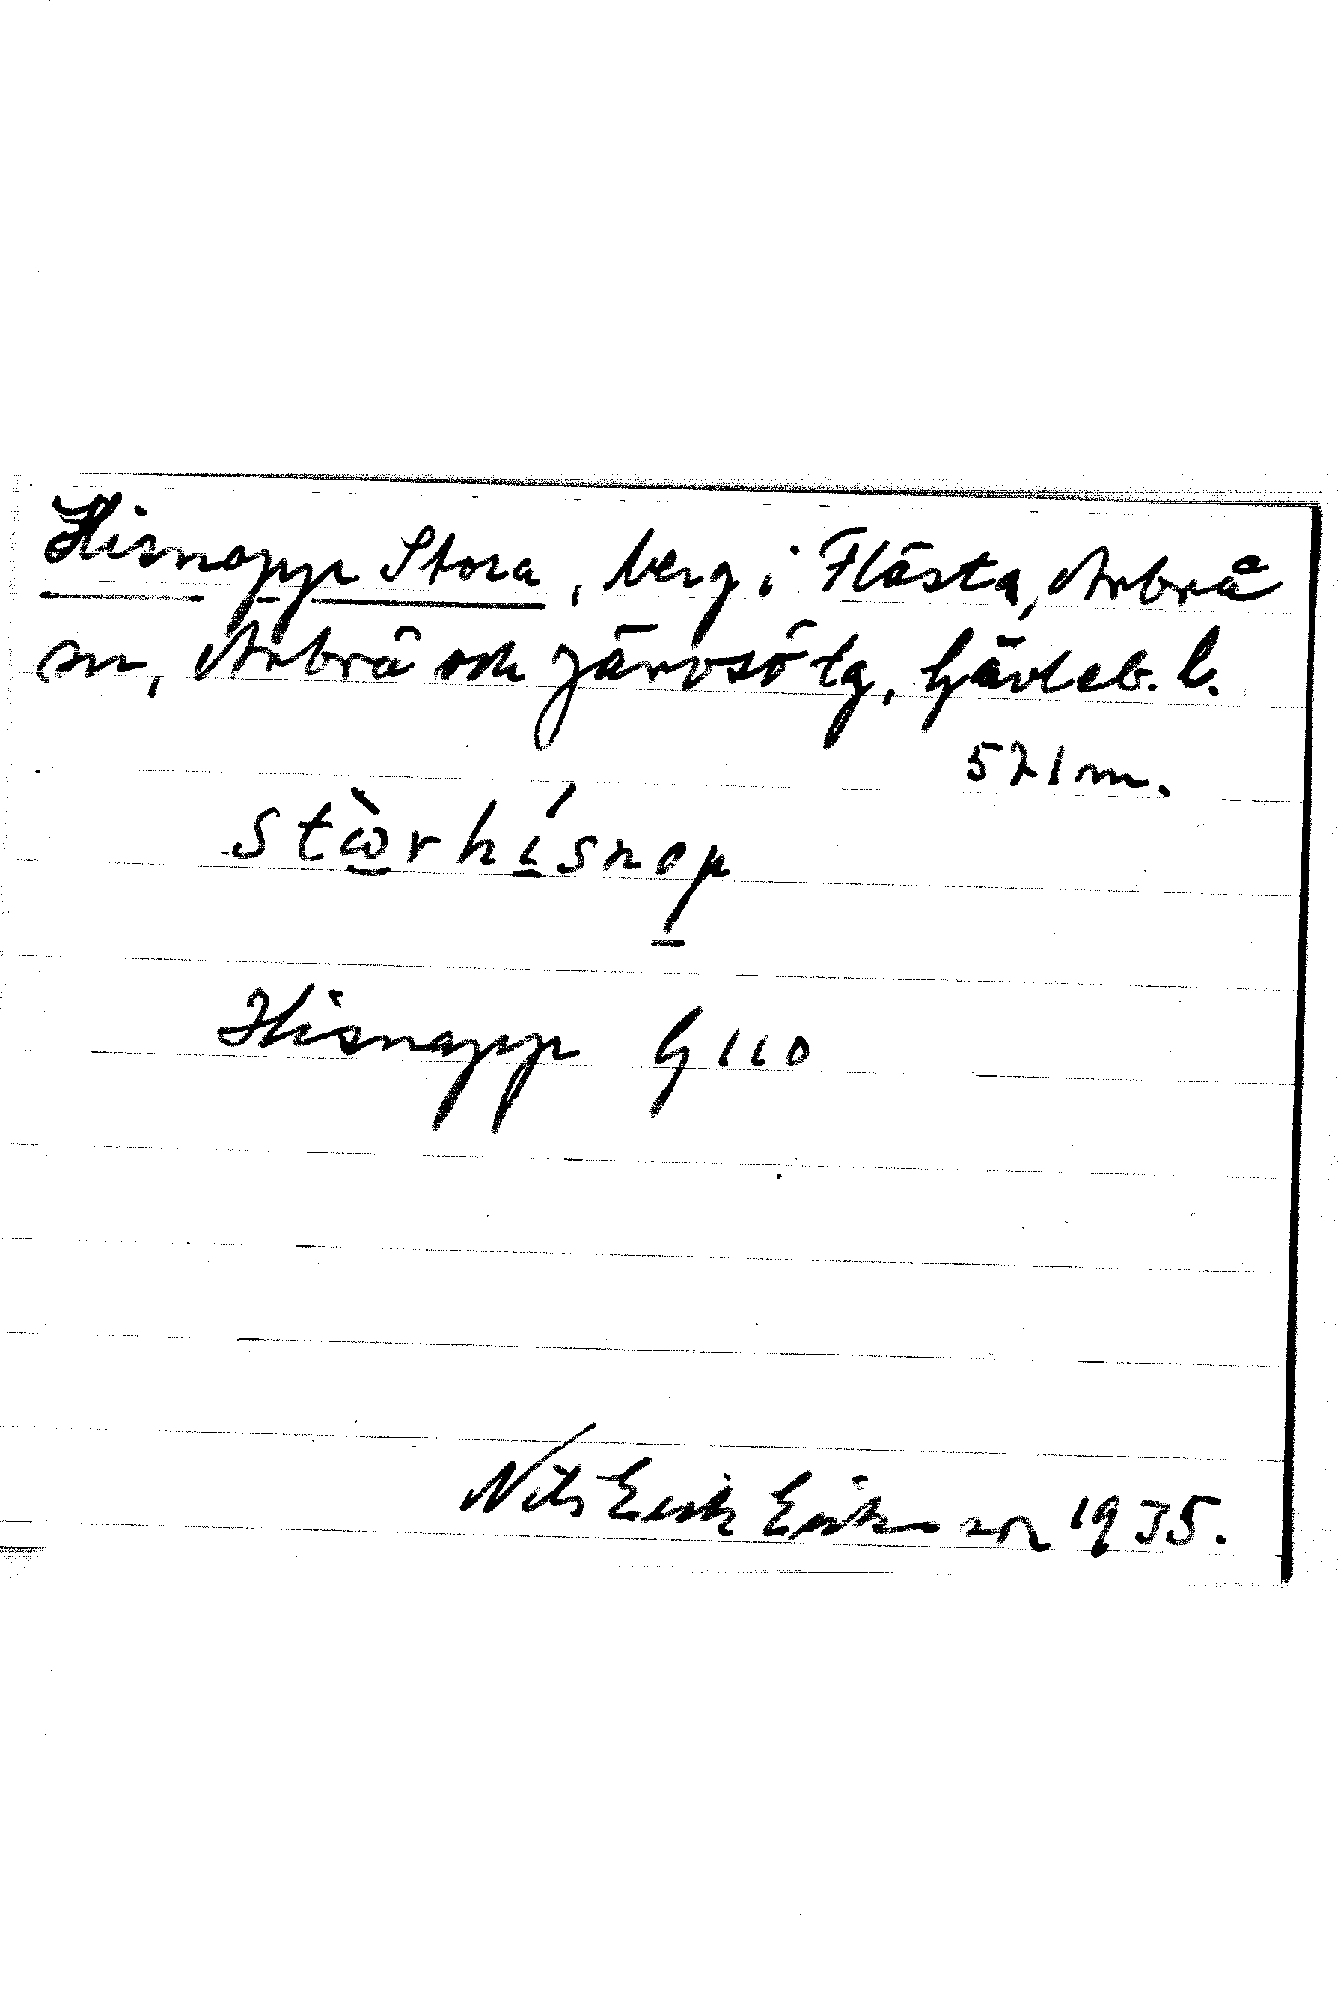 Hisnopp Stora, berg i Flästa, Arbrå
sn, Arbrå och Järvsö tg, Gävleb. l.
521 m.
stὼrhísnop
Hisnapp G 110
Nils Erik Eriksson 1935.